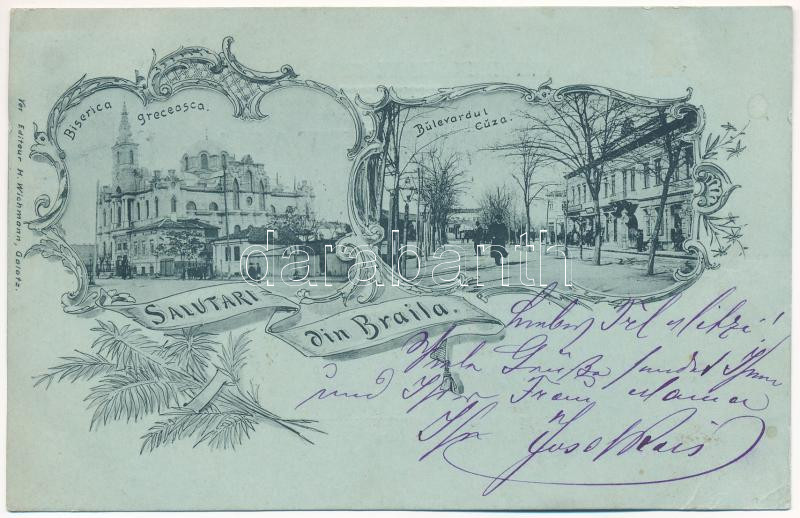 Biserica
greceasca.
Bulevardul
Cuza.
Ver Editeur H. Wichmann, Galatz.
darabanth
SALUTARI
din Braila.
Frl Mitzi!
Viele Grüße sendet Ihnen
und Ihrer Frau Mama
Ihr